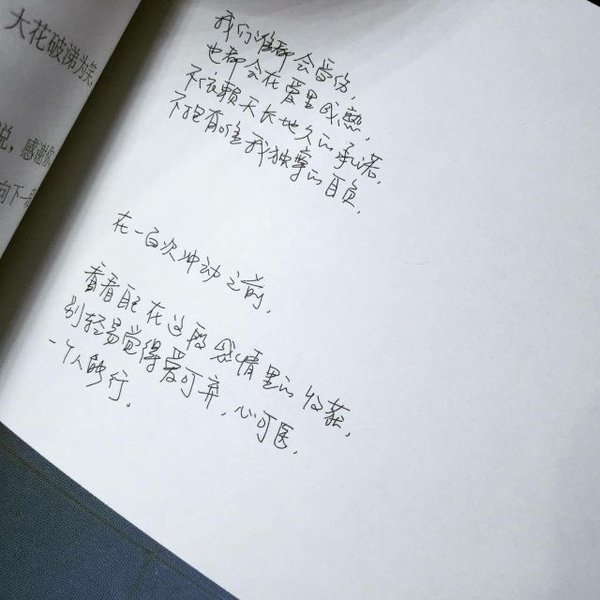 大花破涕为笑
说，感谢你
向下一段
我们谁都会受伤，
也都会在爱里成熟，
不依赖天长地久的承诺，
不抱有唯我独尊的自负，
在一百次冲动之前，
看看自己在这段感情里的收获，
别轻易觉得爱可弃，心可医，
一个人能行。